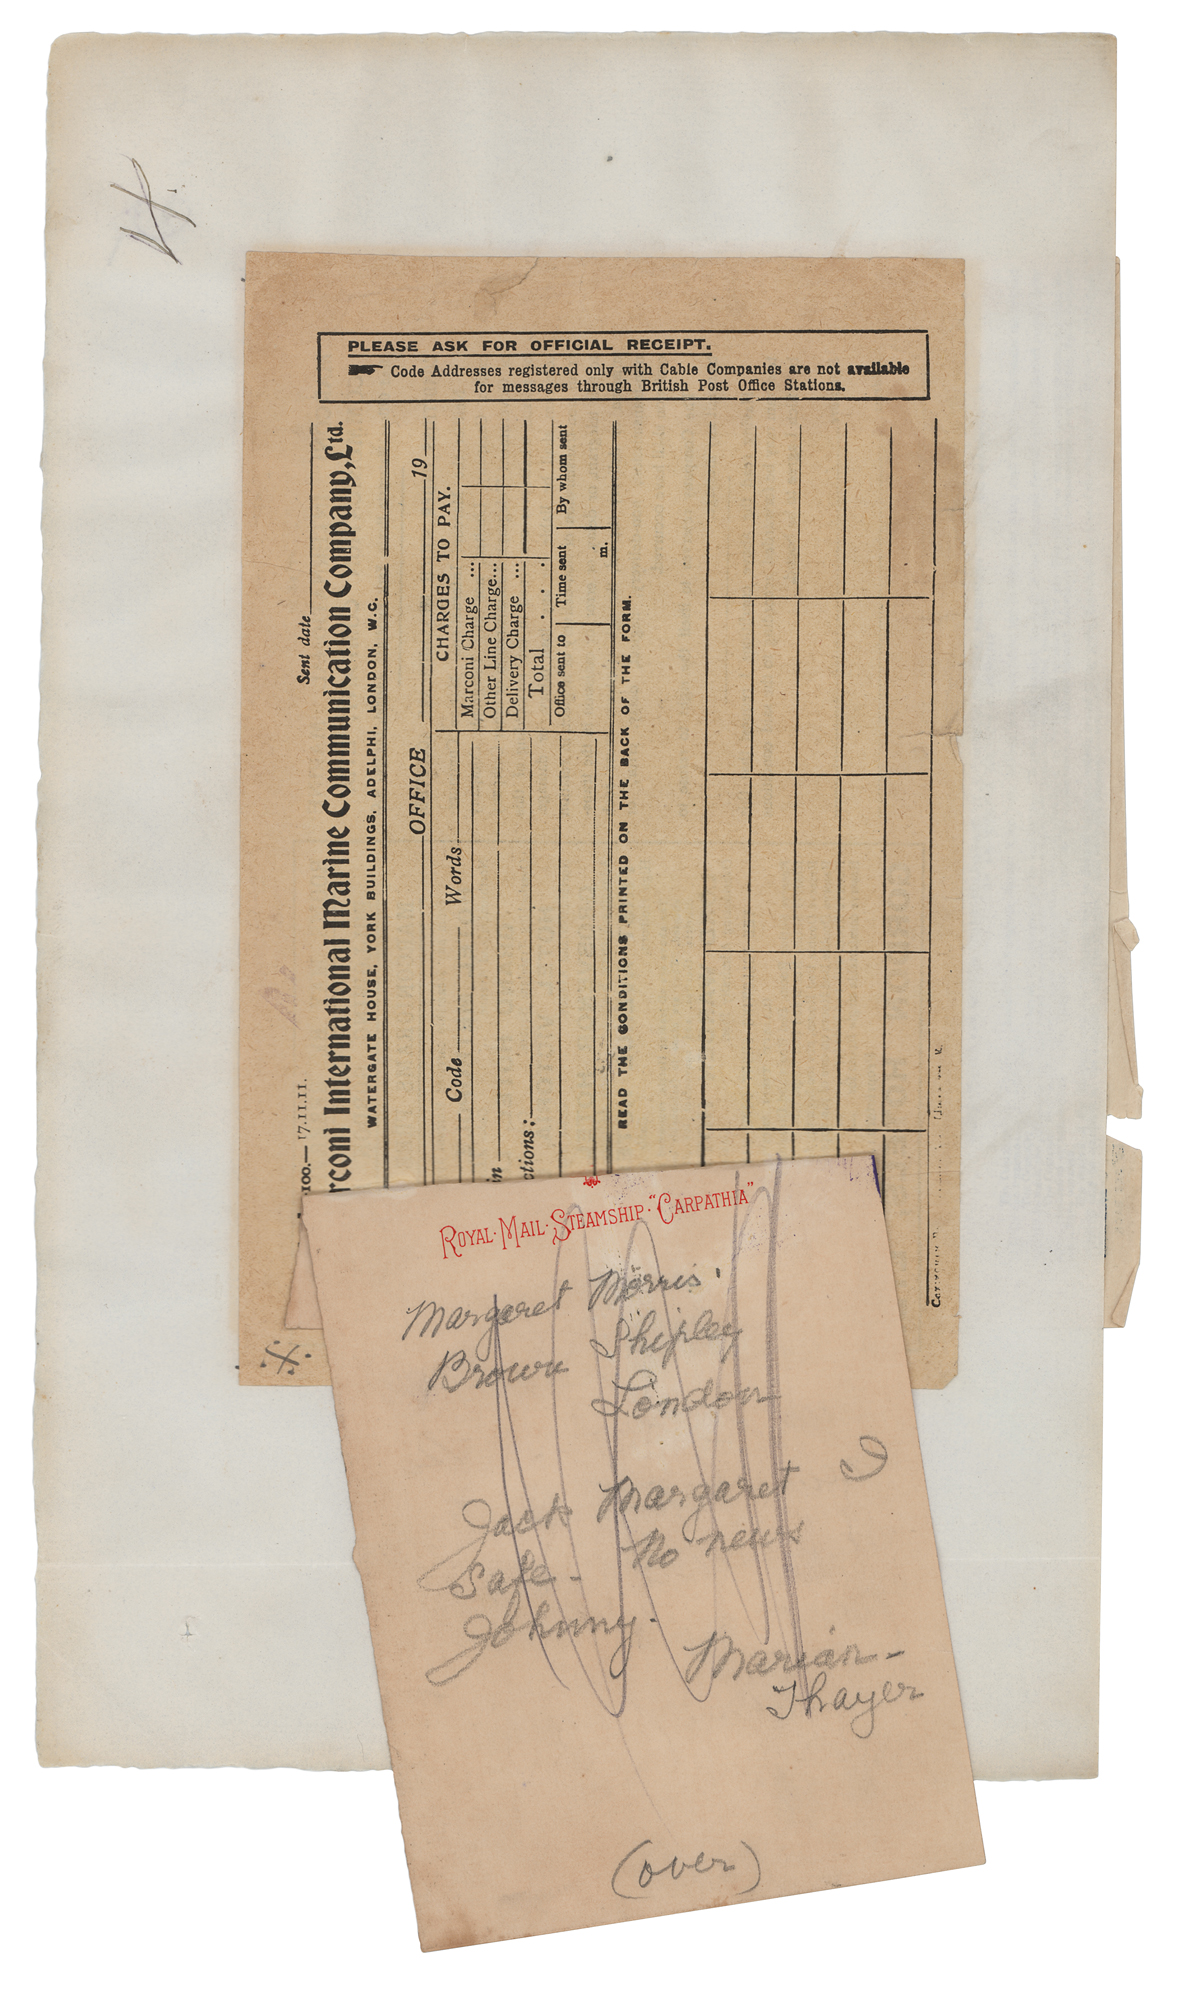 PLEASE ASK FOR OFFICIAL RECEIPT.
Code Addresses registered only with Cable Companies are not available
for messages through British Post Office Stations.
100.—17.11.11.
Sent date
rconi International Marine Communication Company, Ltd.
WATERGATE HOUSE, YORK BUILDINGS, ADELPHI, LONDON, W.C.
OFFICE 19
Code Words
CHARGES TO PAY.
Marconi Charge ...
Other Line Charge...
Delivery Charge ...
Total . . .
Office sent to Time sent By whom sent
m.
in
ctions:
READ THE CONDITIONS PRINTED ON THE BACK OF THE FORM.
ROYAL·MAIL·STEAMSHIP·"CARPATHIA"
Margaret Morris.
Brown Shipley
London
Jack Margaret I
safe - No news
Johnny.
Marian-
Thayer
(over)